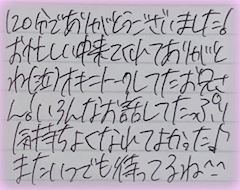 120分でありがとうございました!
お忙しい中来てくれてありがと
ね(泣)オキニトークしてたお兄さ
ん!いろんなお話してたっぷり
気持ちよくなれてよかった♪
またいつでも待ってるね^^